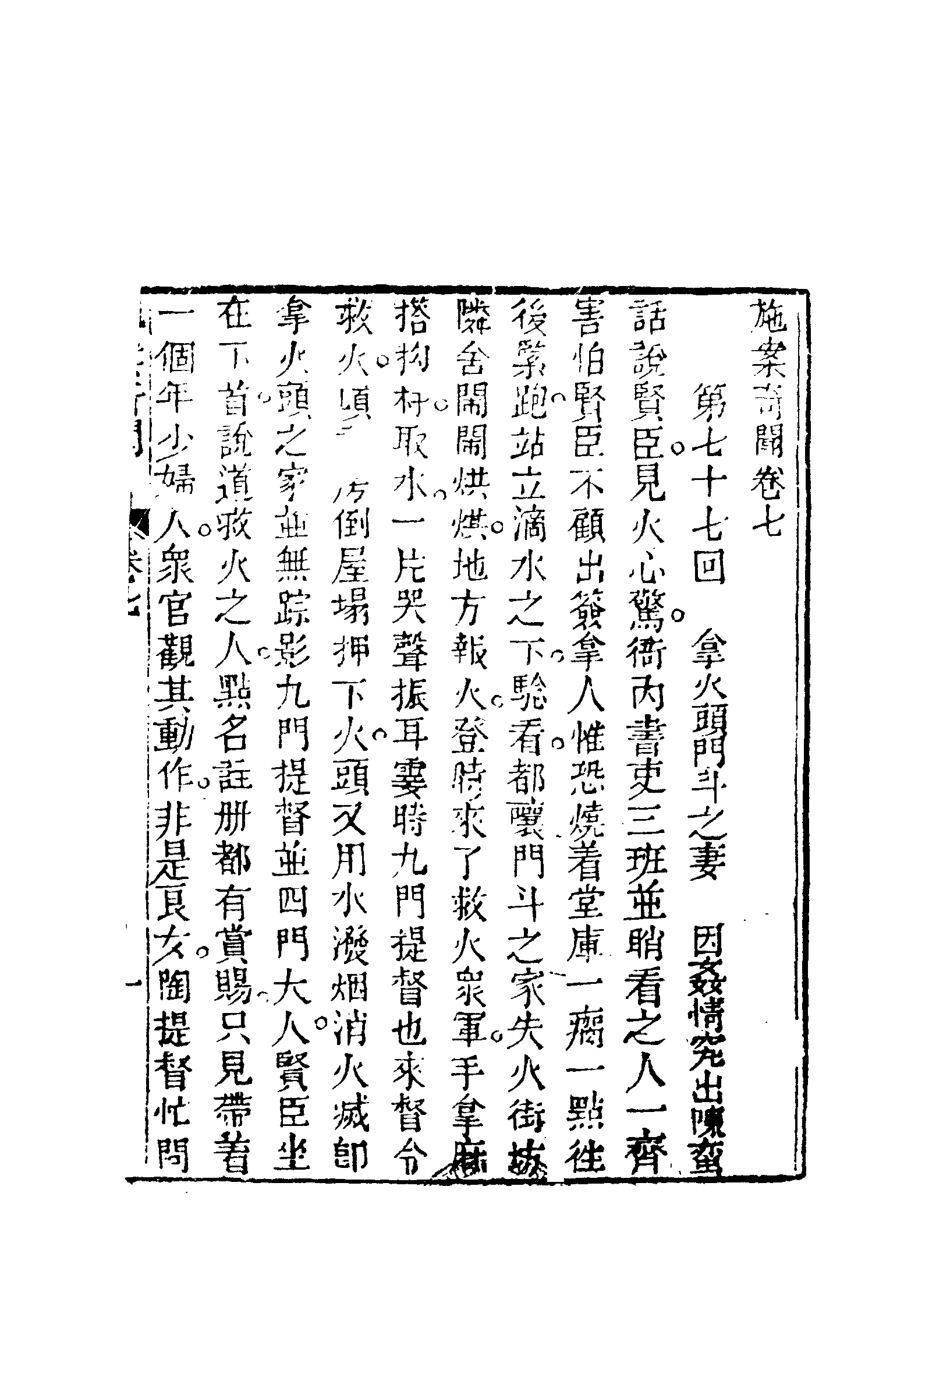 施案奇聞卷七
第七十七回　拿火頭門斗之妻　因姦情究出陳蛮
話說賢臣。見火心驚。衙內書吏三班並哨看之人一齊
害怕賢臣不顧出簽拿人惟恐燒着堂庫一瘸一點徃
後緊跑。站立滴水之下。騐看。都嚷門斗之家失火街坊
隣舍閙閙烘烘。地方報火。登時來了救火衆軍。手拿麻
搭抅杆。取水。一片哭聲振耳霎時九門提督也來督令
救火。頃　房倒屋塌押下火。頭又用水潑烟消火滅卽
拿火頭之家並無踪影九門提督並四門大人。賢臣坐
在下首。說道救火之人。點名註册都有賞賜。只見帶着
一個年少婦人。衆官觀其動作。非是良女。陶提督忙問
卷七
一